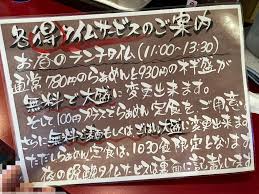 お得タイムサービスのご案内
お昼のランチタイム(11:00〜13:30)
通常780円のらぁめんと930円の
無料で大盛に変更出来ます。
そして100円プラスでらぁめん定食をご用意
さらに無料で もしくはごはん大盛に変更出来ます
ただしらぁめん定食は、10:30食限定となります
夜の タイムサービスは裏面に記載してます